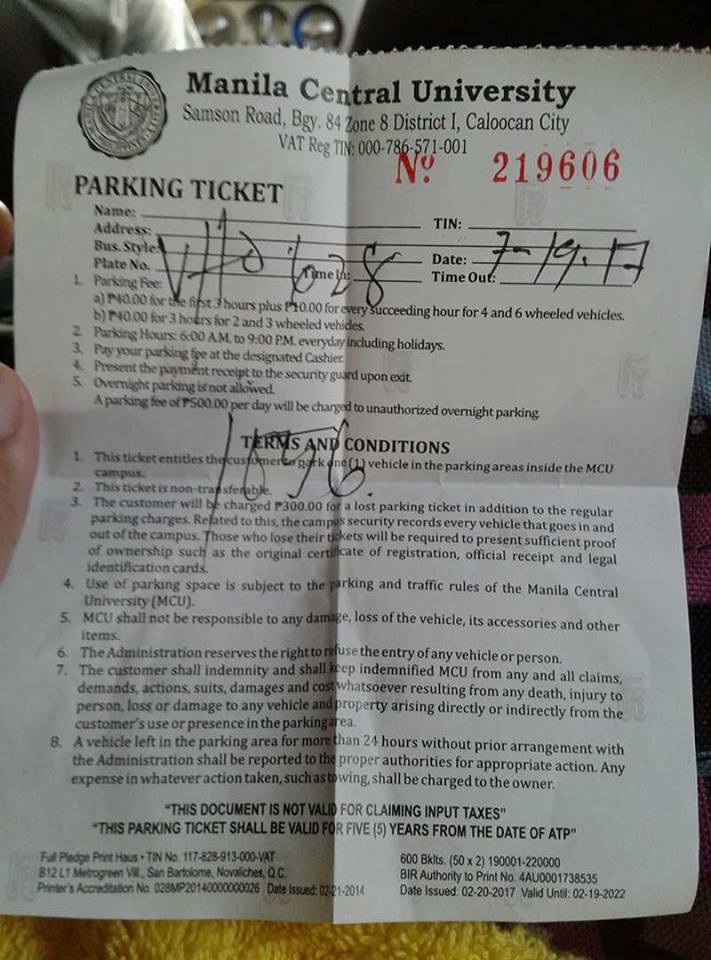 Manila Central University
Samson Road, Bgy. 84 Zone 8 District I, Caloocan City
VAT Reg TIN: 000-786-571-001
Nº 219606
PARKING TICKET
Name: TIN:
Address:
Bus. Style: Date: 7-19-17
Plate No. 628 Time In: Time Out:
1. Parking Fee:
a) ₱40.00 for the first 3 hours plus ₱10.00 for every succeeding hour for 4 and 6 wheeled vehicles.
b) ₱40.00 for 3 hours for 2 and 3 wheeled vehicles.
2. Parking Hours: 6:00 A.M. to 9:00 P.M. everyday including holidays.
3. Pay your parking fee at the designated Cashier.
4. Present the payment receipt to the security guard upon exit.
5. Overnight parking is not allowed.
A parking fee of ₱500.00 per day will be charged to unauthorized overnight parking.
TERMS AND CONDITIONS
1. This ticket entitles the customer to park one (1) vehicle in the parking areas inside the MCU
campus.
2. This ticket is non-transferable.
3. The customer will be charged ₱300.00 for a lost parking ticket in addition to the regular
parking charges. Related to this, the campus security records every vehicle that goes in and
out of the campus. Those who lose their tickets will be required to present sufficient proof
of ownership such as the original certificate of registration, official receipt and legal
identification cards.
4. Use of parking space is subject to the parking and traffic rules of the Manila Central
University (MCU).
5. MCU shall not be responsible to any damage, loss of the vehicle, its accessories and other
items.
6. The Administration reserves the right to refuse the entry of any vehicle or person.
7. The customer shall indemnity and shall keep indemnified MCU from any and all claims,
demands, actions, suits, damages and cost whatsoever resulting from any death, injury to
person, loss or damage to any vehicle and property arising directly or indirectly from the
customer's use or presence in the parking area.
8. A vehicle left in the parking area for more than 24 hours without prior arrangement with
the Administration shall be reported to the proper authorities for appropriate action. Any
expense in whatever action taken, such as towing, shall be charged to the owner.
"THIS DOCUMENT IS NOT VALID FOR CLAIMING INPUT TAXES"
"THIS PARKING TICKET SHALL BE VALID FOR FIVE (5) YEARS FROM THE DATE OF ATP"
Full Pledge Print Haus • TIN No. 117-828-913-000-VAT
B12 L1 Metrogreen Vill., San Bartolome, Novaliches, Q.C.
Printer's Accreditation No. 028MP20140000000026 Date Issued: 02-21-2014
600 Bklts. (50 x 2) 190001-220000
BIR Authority to Print No. 4AU0001738535
Date Issued: 02-20-2017 Valid Until: 02-19-2022